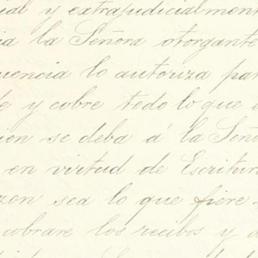 ial y extrajudicialment
ia la Señora otorgante
uencia lo autoriza par
de y cobre todo lo que a
ien se deba á la Seño
en virtud de Escritur
zon sea lo que fiere
cobrare los recibos y d